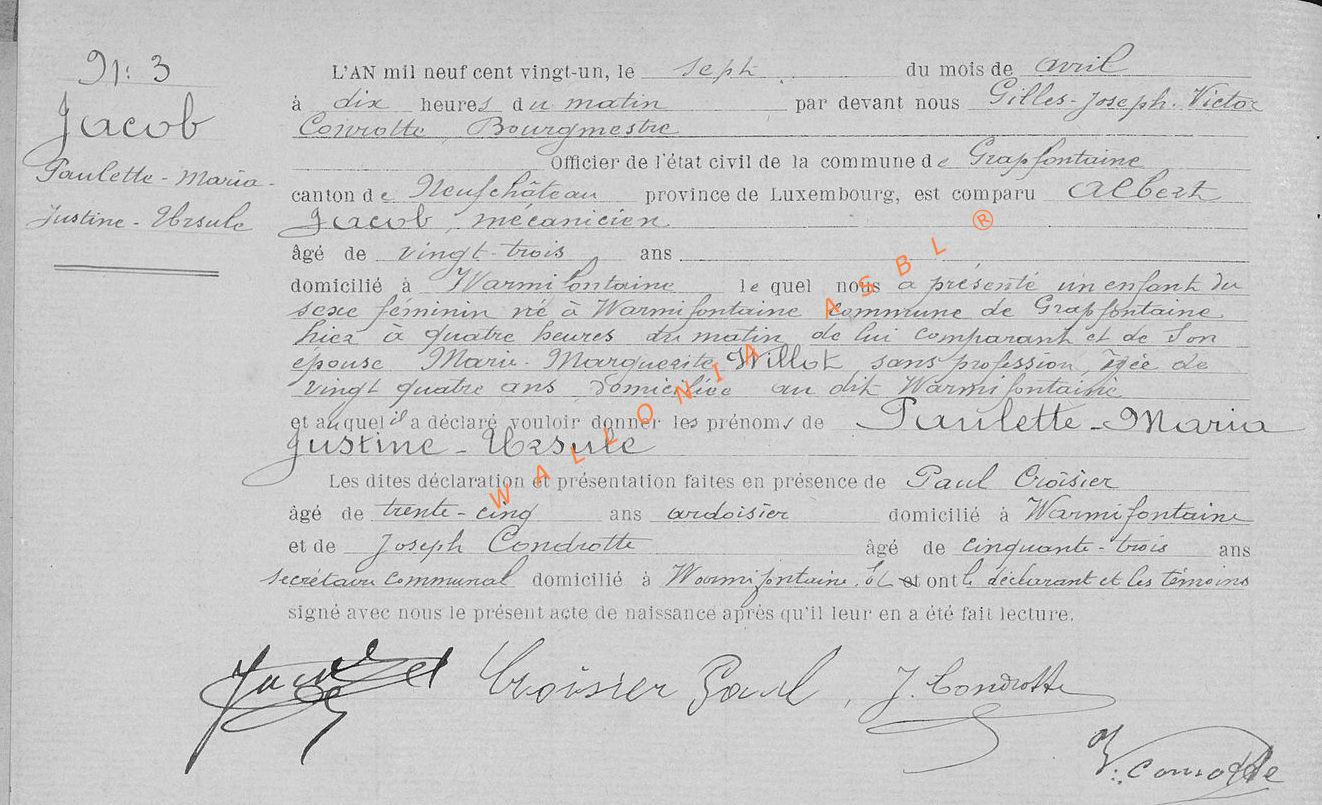 N: 3
Jacob
Paulette - Maria -
Justine - Ursule
L'AN mil neuf cent vingt-un, le sept du mois de avril
à dix heures du matin par devant nous Gilles-Joseph-Victor
Bourgmestre
Officier de l'état civil de la commune de Grapfontaine
canton de Neufchâteau province de Luxembourg, est comparu Albert
Jacob, mécanicien
âgé de vingt-trois ans
domicilié à Warmifontaine lequel nous a présenté un enfant du
sexe féminin né à Warmifontaine commune de Grapfontaine
hier à quatre heures du matin de lui comparant et de son
épouse Marie-Marguerite Willot sans profession, âgée de
vingt quatre ans domiciliée au dit Warmifontaine
et auquel il a déclaré vouloir donner les prénoms de Paulette-Maria
Justine - Ursule
Les dites déclaration et présentation faites en présence de Paul Croisier
âgé de trente-cinq ans ardoisier domicilié à Warmifontaine
et de Joseph Condrotte âgé de cinquante-trois ans
secrétaire communal domicilié à Warmifontaine. Et et ont le déclarant et les témoins
signé avec nous le présent acte de naissance après qu'il leur en a été fait lecture.
Croisier Paul, J. Condrotte
WALLONIA ASBL ®